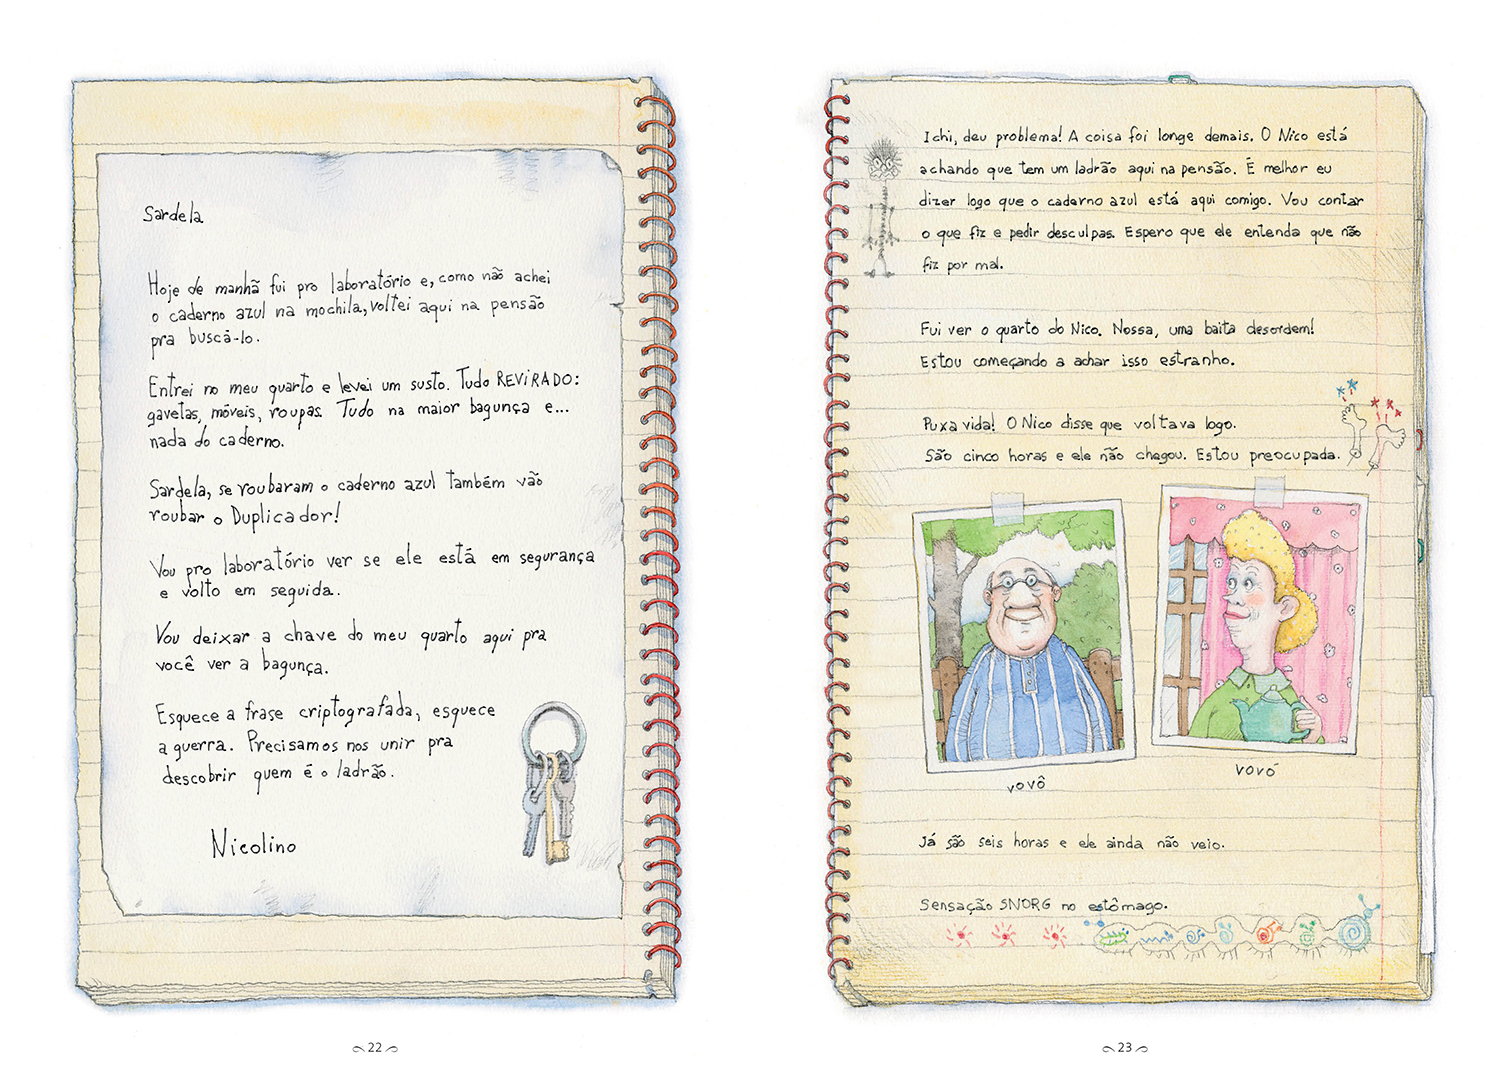 Sardela
Hoje de manhã fui pro laboratório e, como não achei
o caderno azul na mochila, voltei aqui na pensão
pra buscá-lo.
Entrei no meu quarto e levei um susto. Tudo REVIRADO:
gavetas, móveis, roupas. Tudo na maior bagunça e...
nada do caderno.
Sardela, se roubaram o caderno azul também vão
roubar o Duplicador!
Vou pro laboratório ver se ele está em segurança
e volto em seguida.
Vou deixar a chave do meu quarto aqui pra
você ver a bagunça.
Esquece a frase criptografada, esquece
a guerra. Precisamos nos unir pra
descobrir quem é o ladrão.
Nicolino
22
Ichi, deu problema! A coisa foi longe demais. O Nico está
achando que tem um ladrão aqui na pensão. É melhor eu
dizer logo que o caderno azul está aqui comigo. Vou contar
o que fiz e pedir desculpas. Espero que ele entenda que não
fiz por mal.
Fui ver o quarto do Nico. Nossa, uma baita desordem!
Estou começando a achar isso estranho.
Puxa vida! O Nico disse que voltava logo.
São cinco horas e ele não chegou. Estou preocupada.
vovô
vovó
Já são seis horas e ele ainda não veio.
Sensação SNORG no estômago.
23